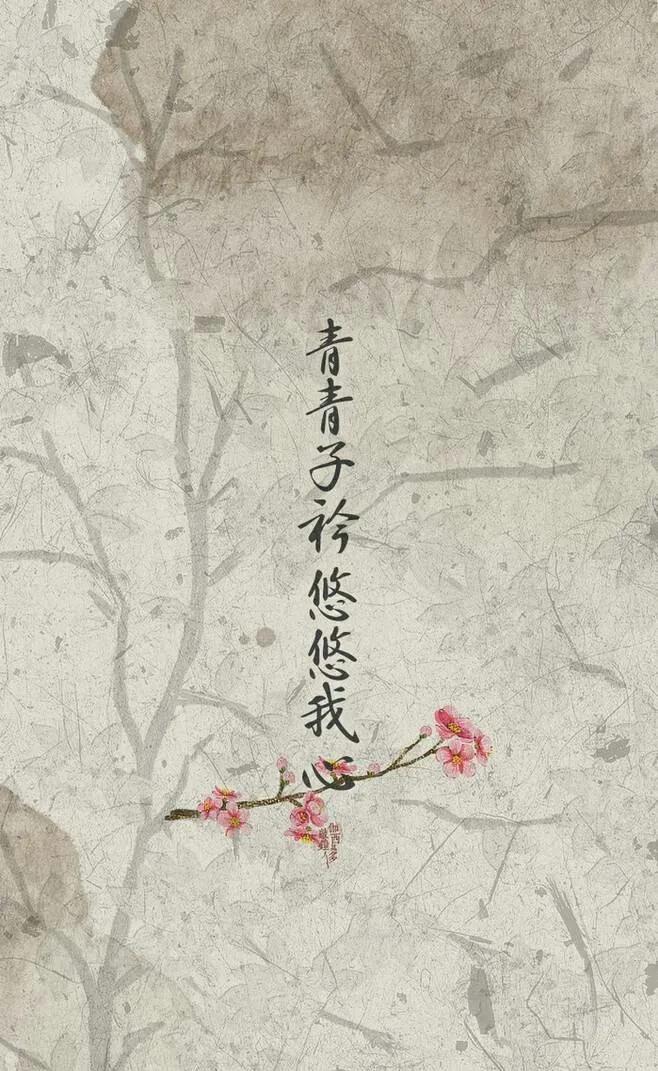 青青子衿悠悠我心